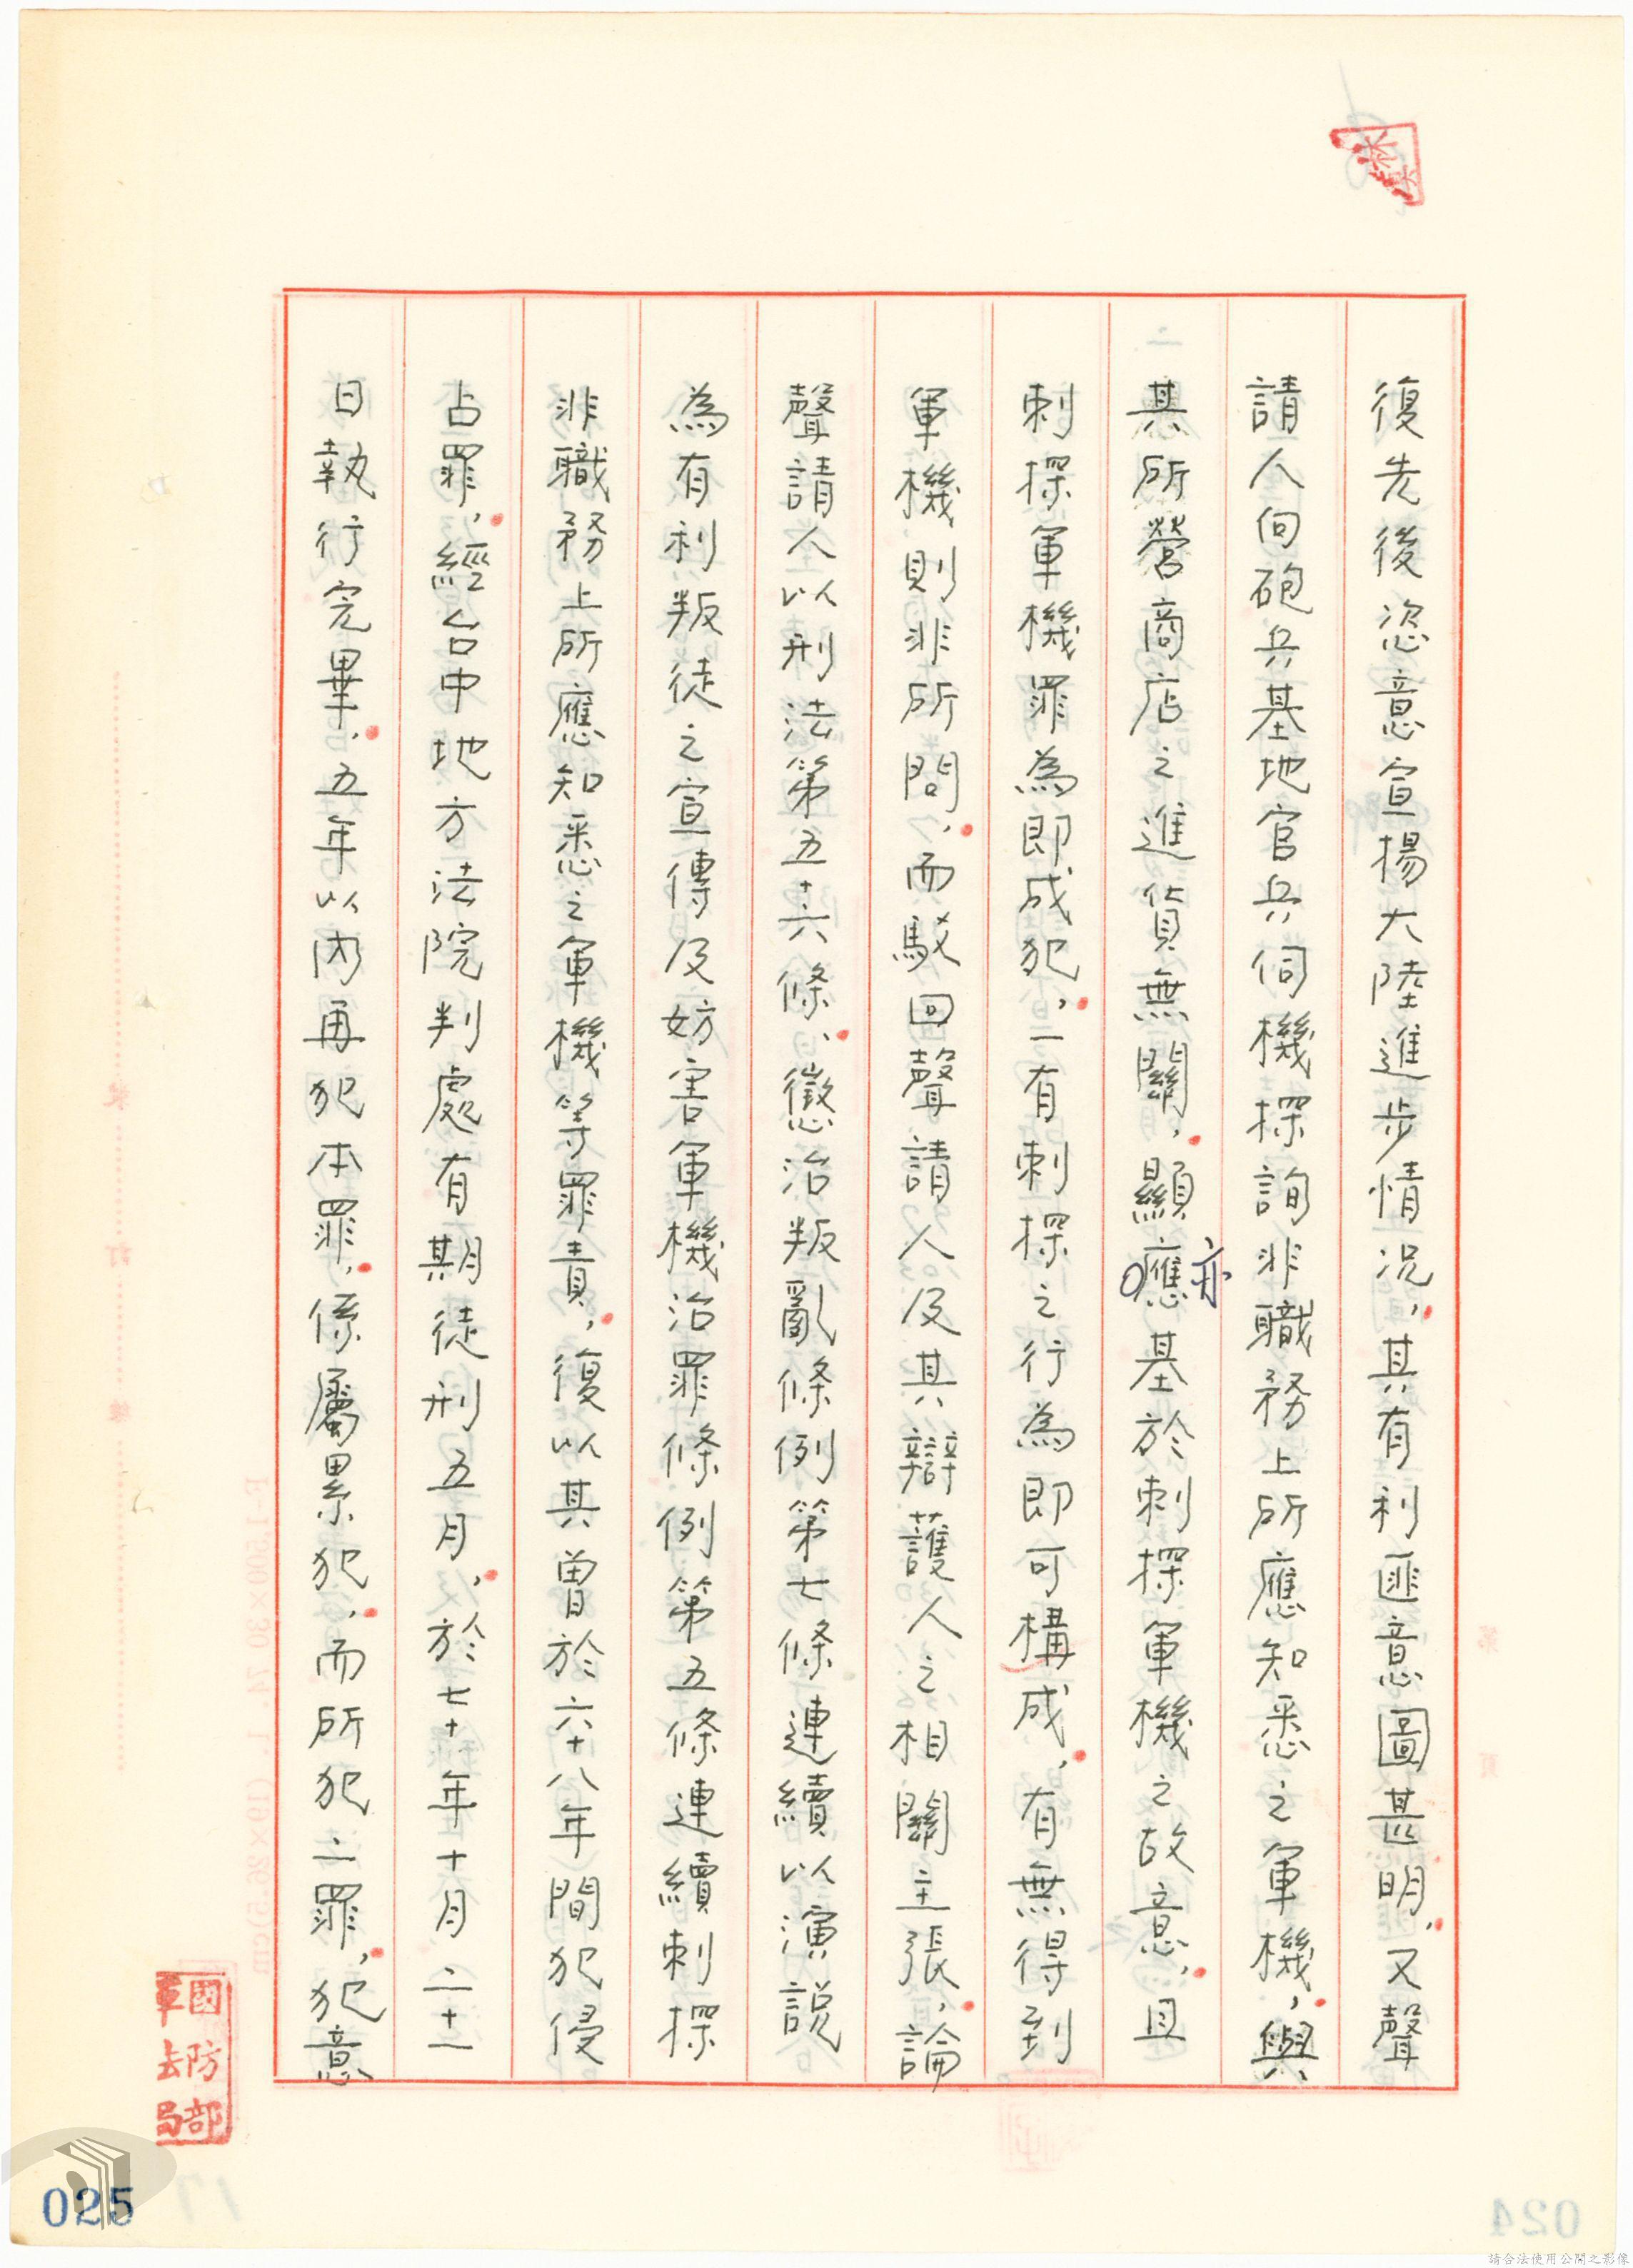 復先後恣意宣揚大陸進步情況，其有利匪意圖甚明，又聲
請人向砲兵基地官兵伺機探詢非職務上所應知悉之軍機，與
其所營商店之進貨無關，顯應基於刺探軍機之故意，且
亦
刺探軍機罪為即成犯，一有刺探之行為即可構成，有無得到
軍機則非所問，而駁回聲請人及其辯護人之相關主張，論
聲請人以刑法第五十六條、懲治叛亂條例第七條連續以演說
為有利叛徒之宣傳及妨害軍機治罪條例第五條連續刺探
非職務上所應知悉之軍機等罪責，復以其曾於六十八年間犯侵
占罪，經台中地方法院判處有期徒刑五月，於七十年十月二十一
日執行完畢，五年以內再犯本罪，係屬累犯，而所犯二罪，犯意
國防部
軍法局
025
024
17
第 頁
裝 訂 線
請合法使用公開之影像